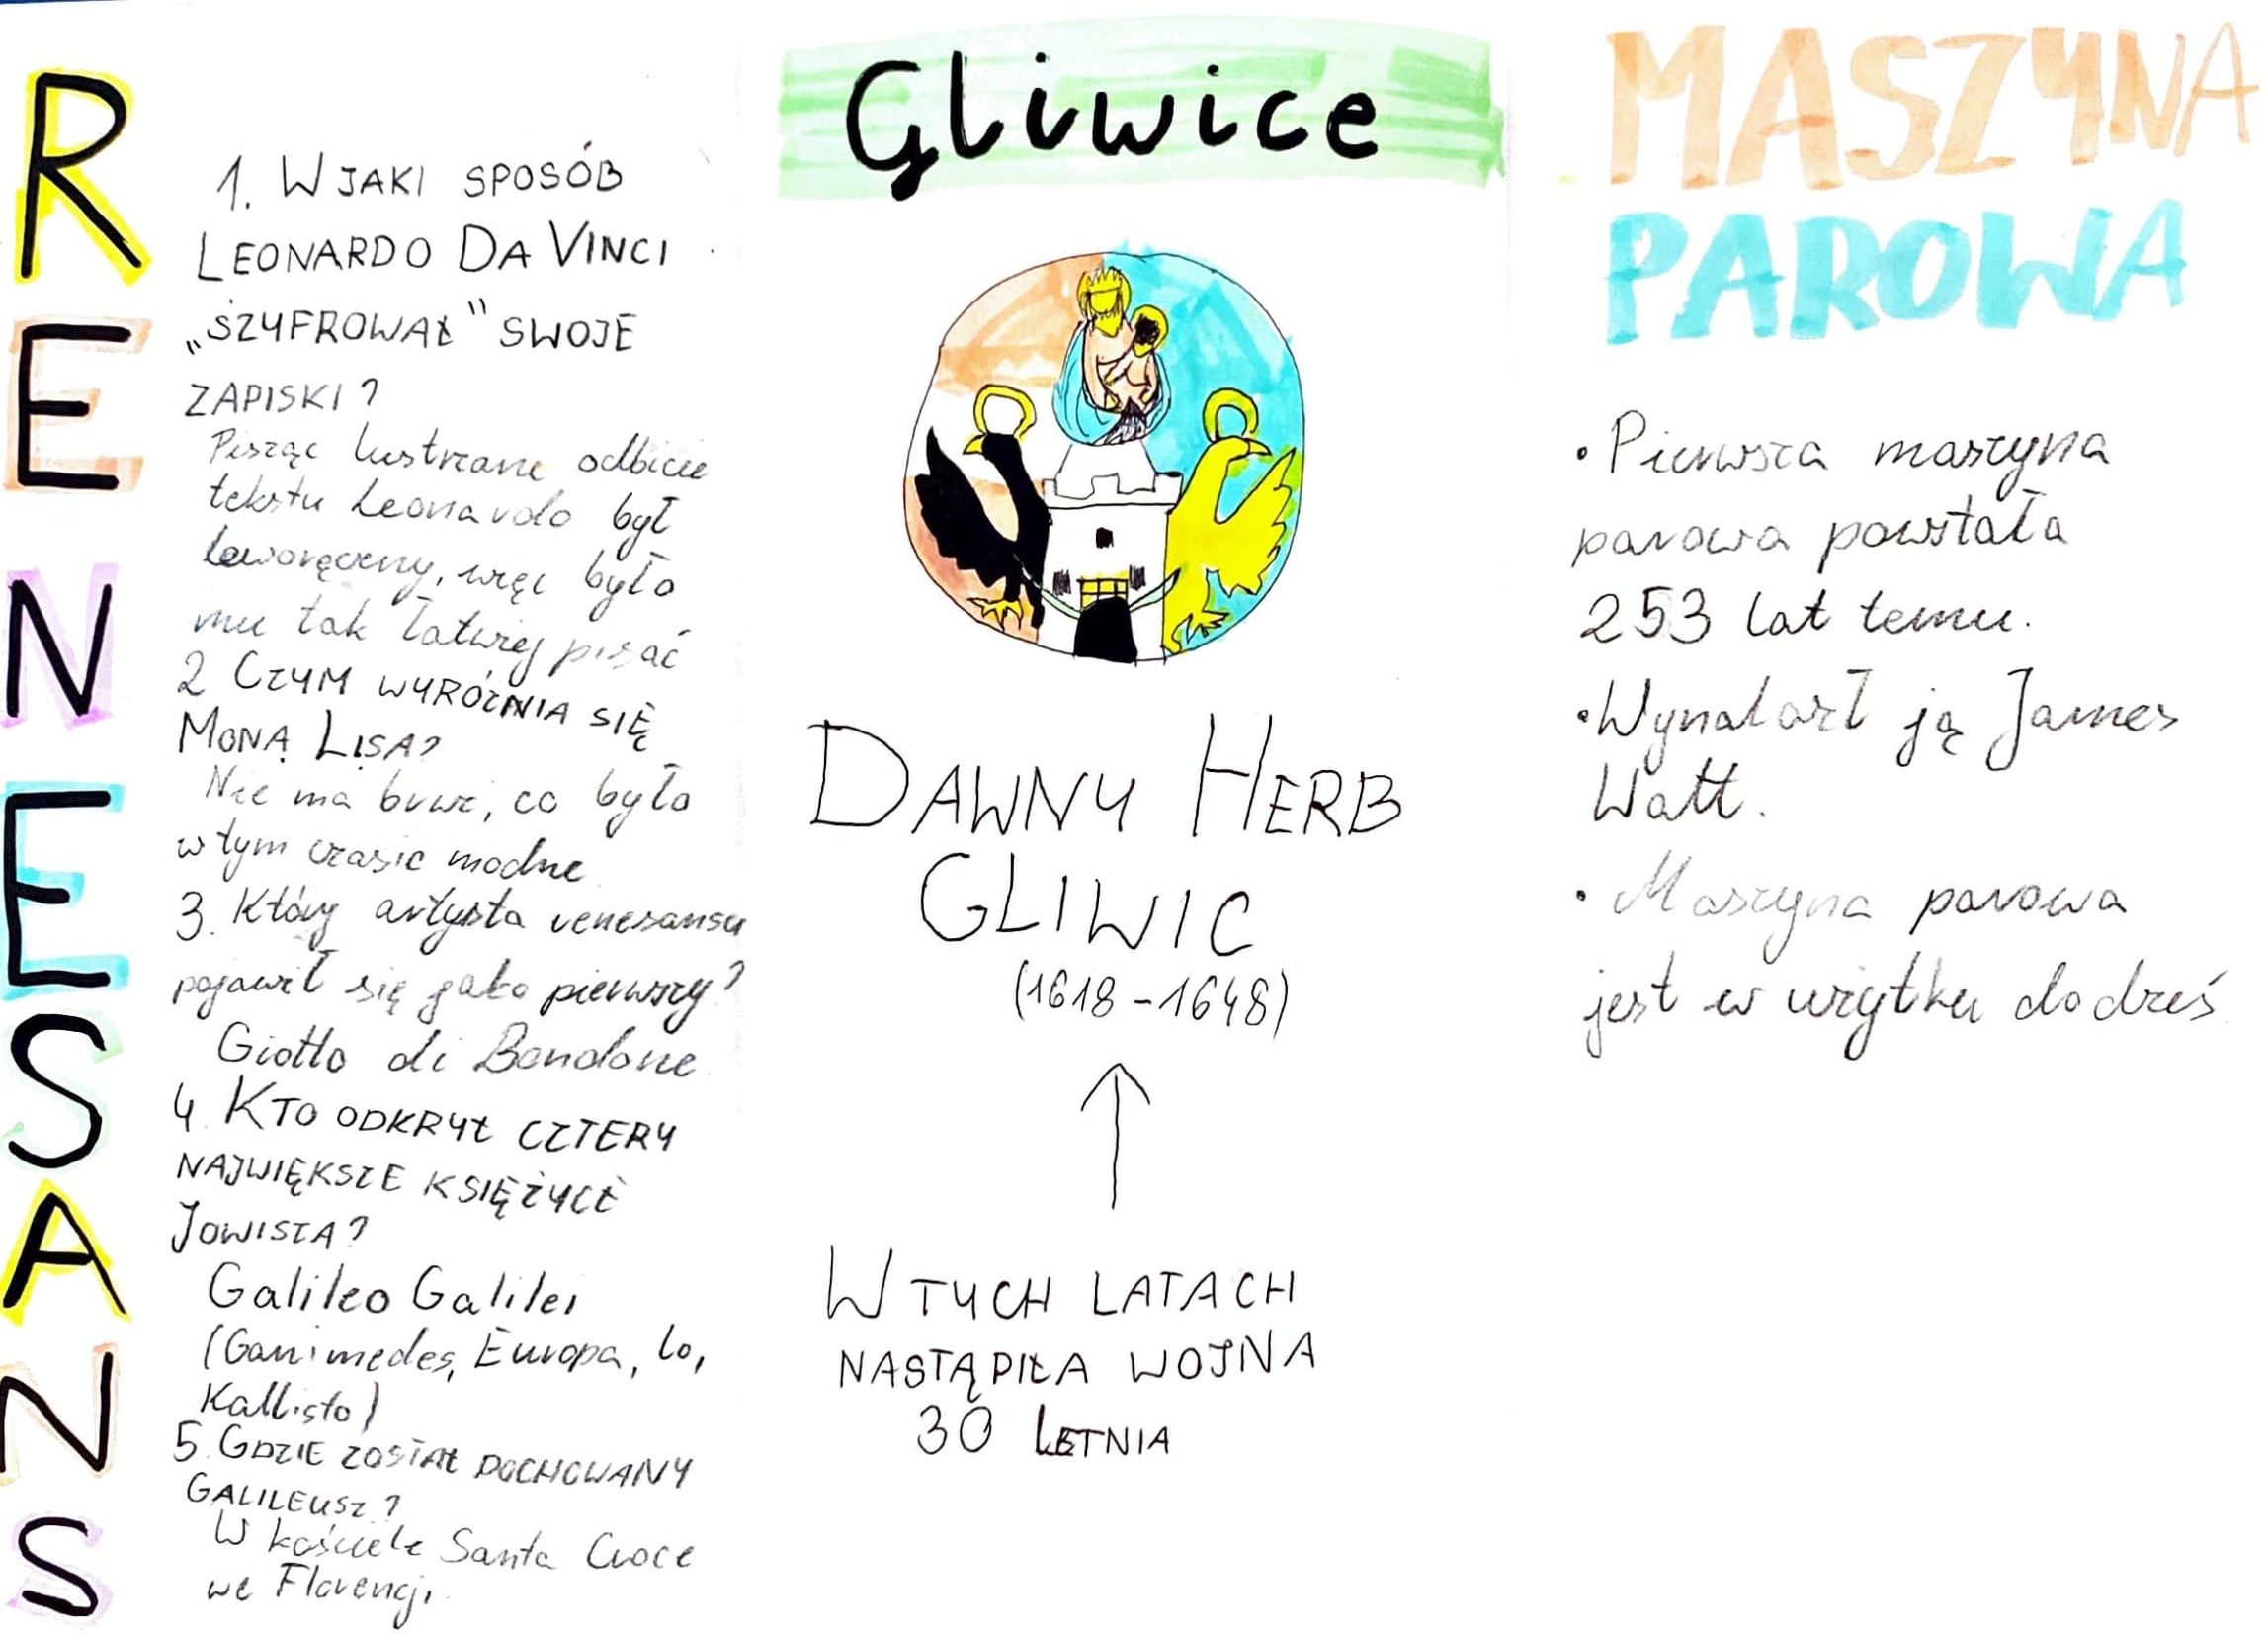 RENESANS
1. W JAKI SPOSÓB
LEONARDO DA VINCI
„SZYFROWAŁ" SWOJE
ZAPISKI?
Pisząc lustrzane odbicie
tekstu Leonardo był
leworęczny, więc było
mu tak łatwiej pisać
2 CZYM WYRÓŻNIA SIĘ
MONA LISA?
Nie ma brwi, co było
w tym czasie modne
3. Który artysta renesansu
pojawił się jako pierwszy?
Giotto di Bondone
4. KTO ODKRYŁ CZTERY
NAJWIĘKSZE KSIĘŻYCE
JOWISZA?
Galileo Galilei
(Ganimedes, Europa, Io,
Kallisto)
5. GDZIE ZOSTAŁ POCHOWANY
GALILEUSZ?
W kościele Santa Croce
we Florencji.
Gliwice
DAWNY HERB
GLIWIC
(1618-1648)
W TYCH LATACH
NASTĄPIŁA WOJNA
30 LETNIA
MASZYNA
PAROWA
• Pierwsza maszyna
parowa powstała
253 lat temu.
• Wynalazł ją James
Watt.
• Maszyna parowa
jest w użytku do dziś